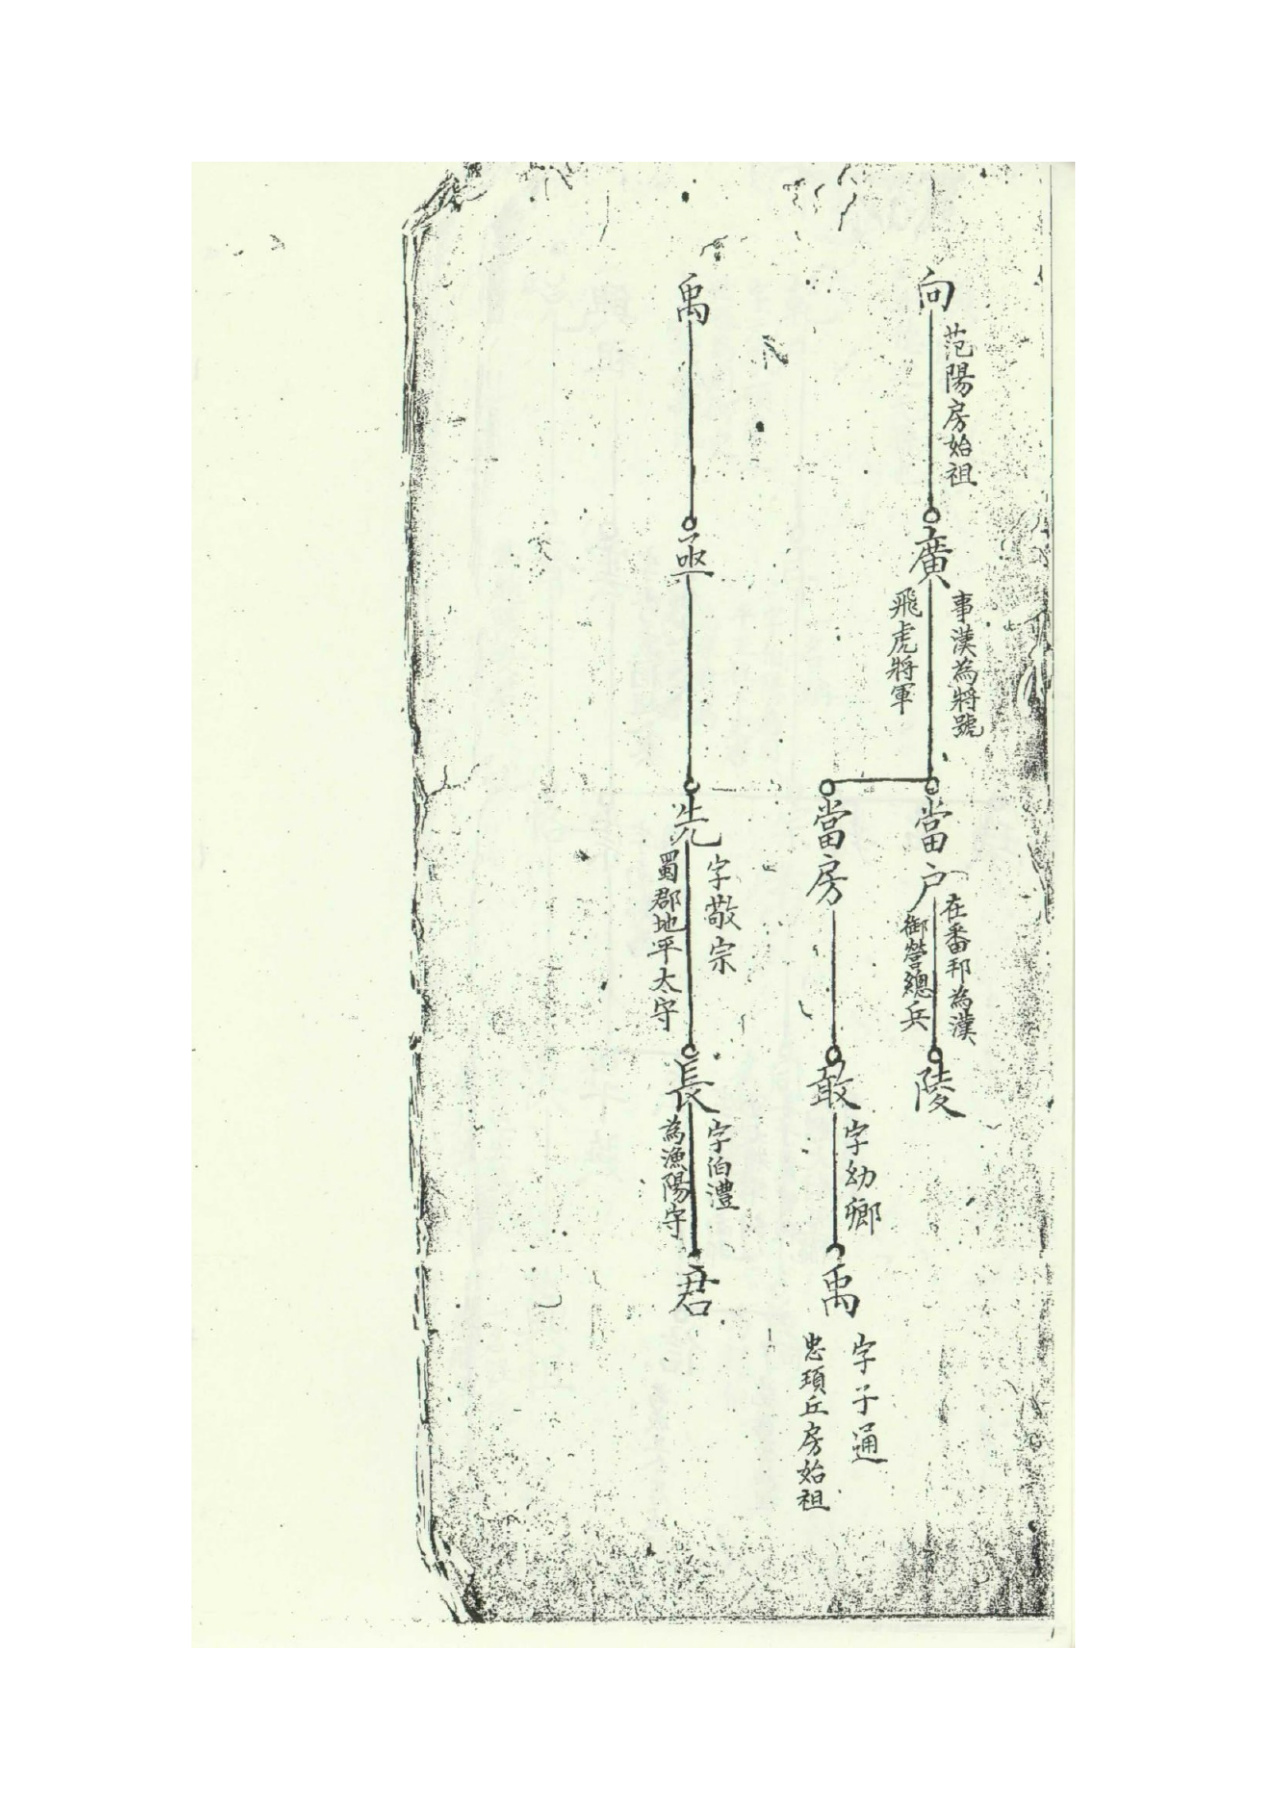 向
范陽房始祖
廣
事漢為將號
飛虎將軍
當户
在番邦為漢
御營總兵
陵
當房
敢
字幼卿
禹
字子通
忠頊丘房始祖
禹
丞
先
字敬宗
蜀郡地平太守
長
字伯澧
為漁陽守
君